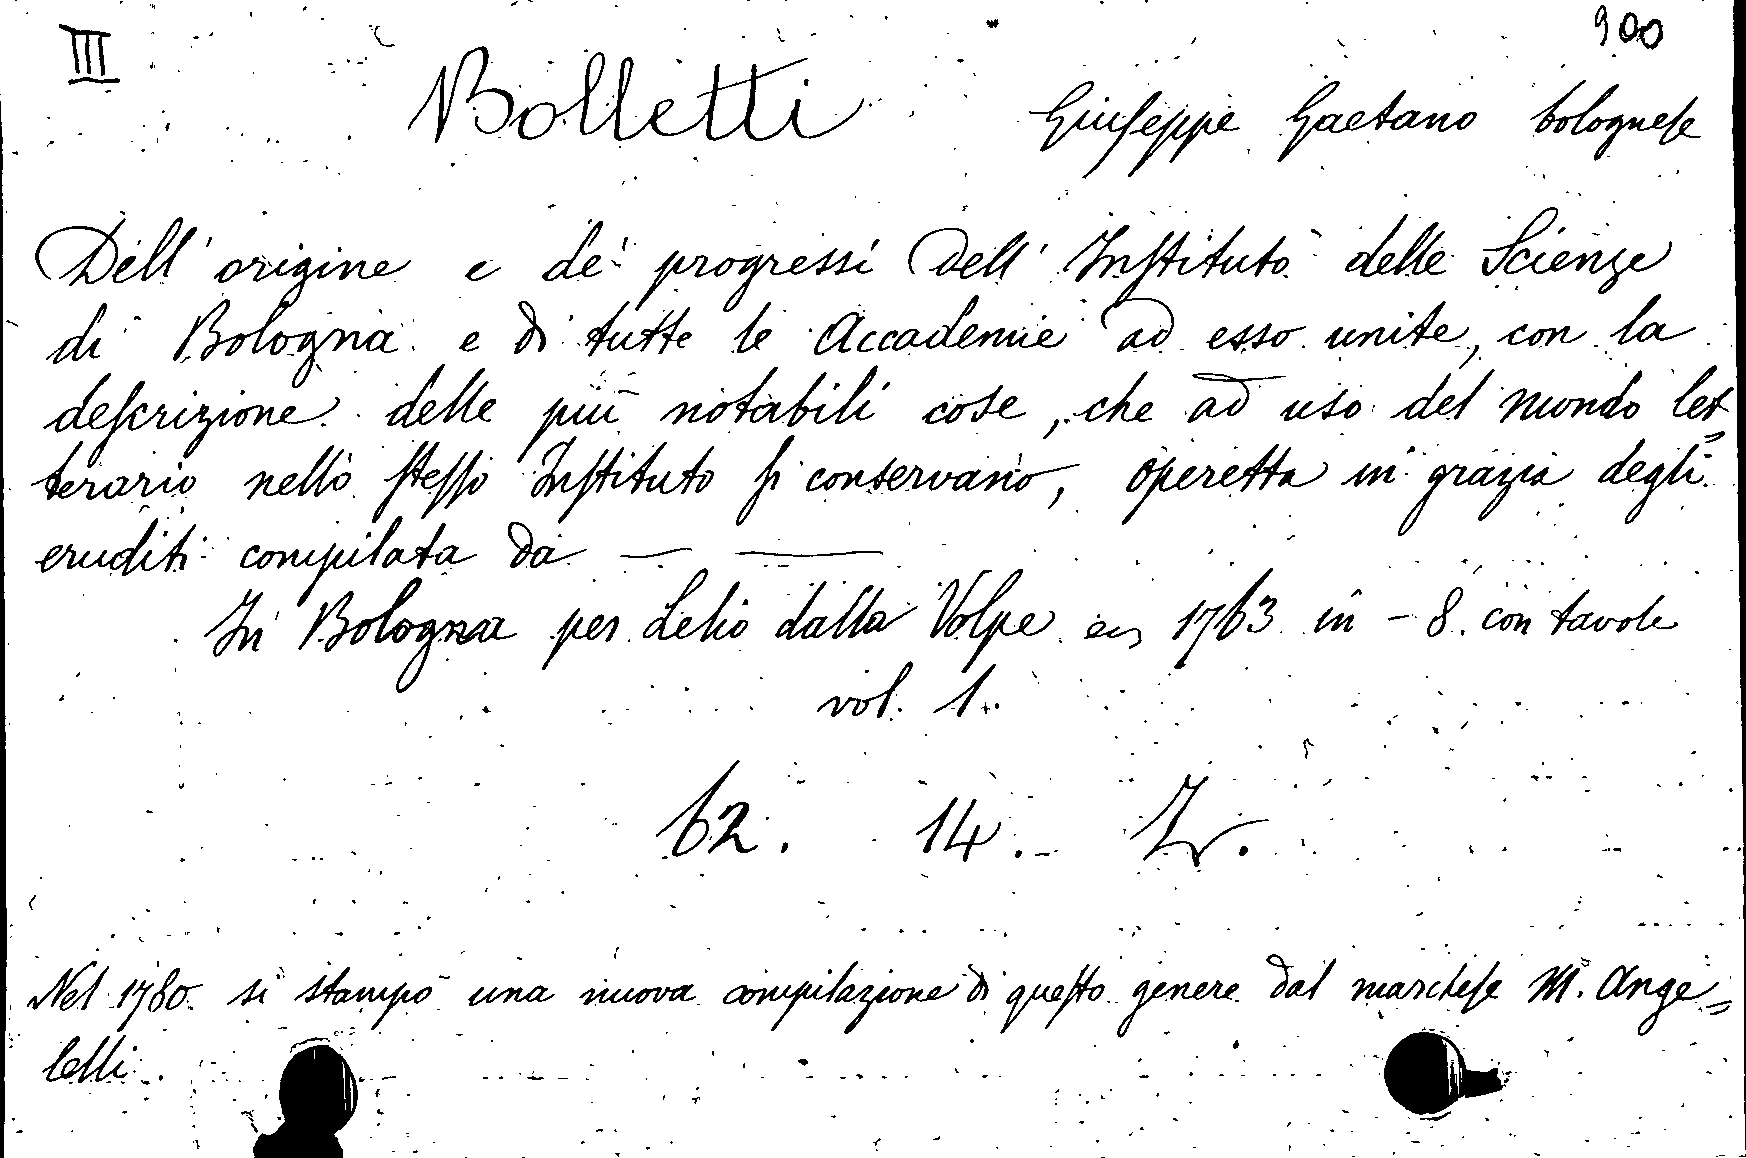 III
900
Bolletti Giuseppe Gaetano bolognese
Dell' origine e de' progressi dell' Instituto delle Scienze
di Bologna e di tutte le Accademie ad esso unite, con la
descrizione delle più notabili cose, che ad uso del mondo let=
terario nello stesso Instituto si conservano, operetta in grazia degli
eruditi compilata da — —
In Bologna per Lelio dalla Volpe 1763 in - 8. con tavole
vol. 1.
62. 14.
Nel 1780. si stampò una nuova compilazione di questo genere dal marchese M. Ange=
lelli.